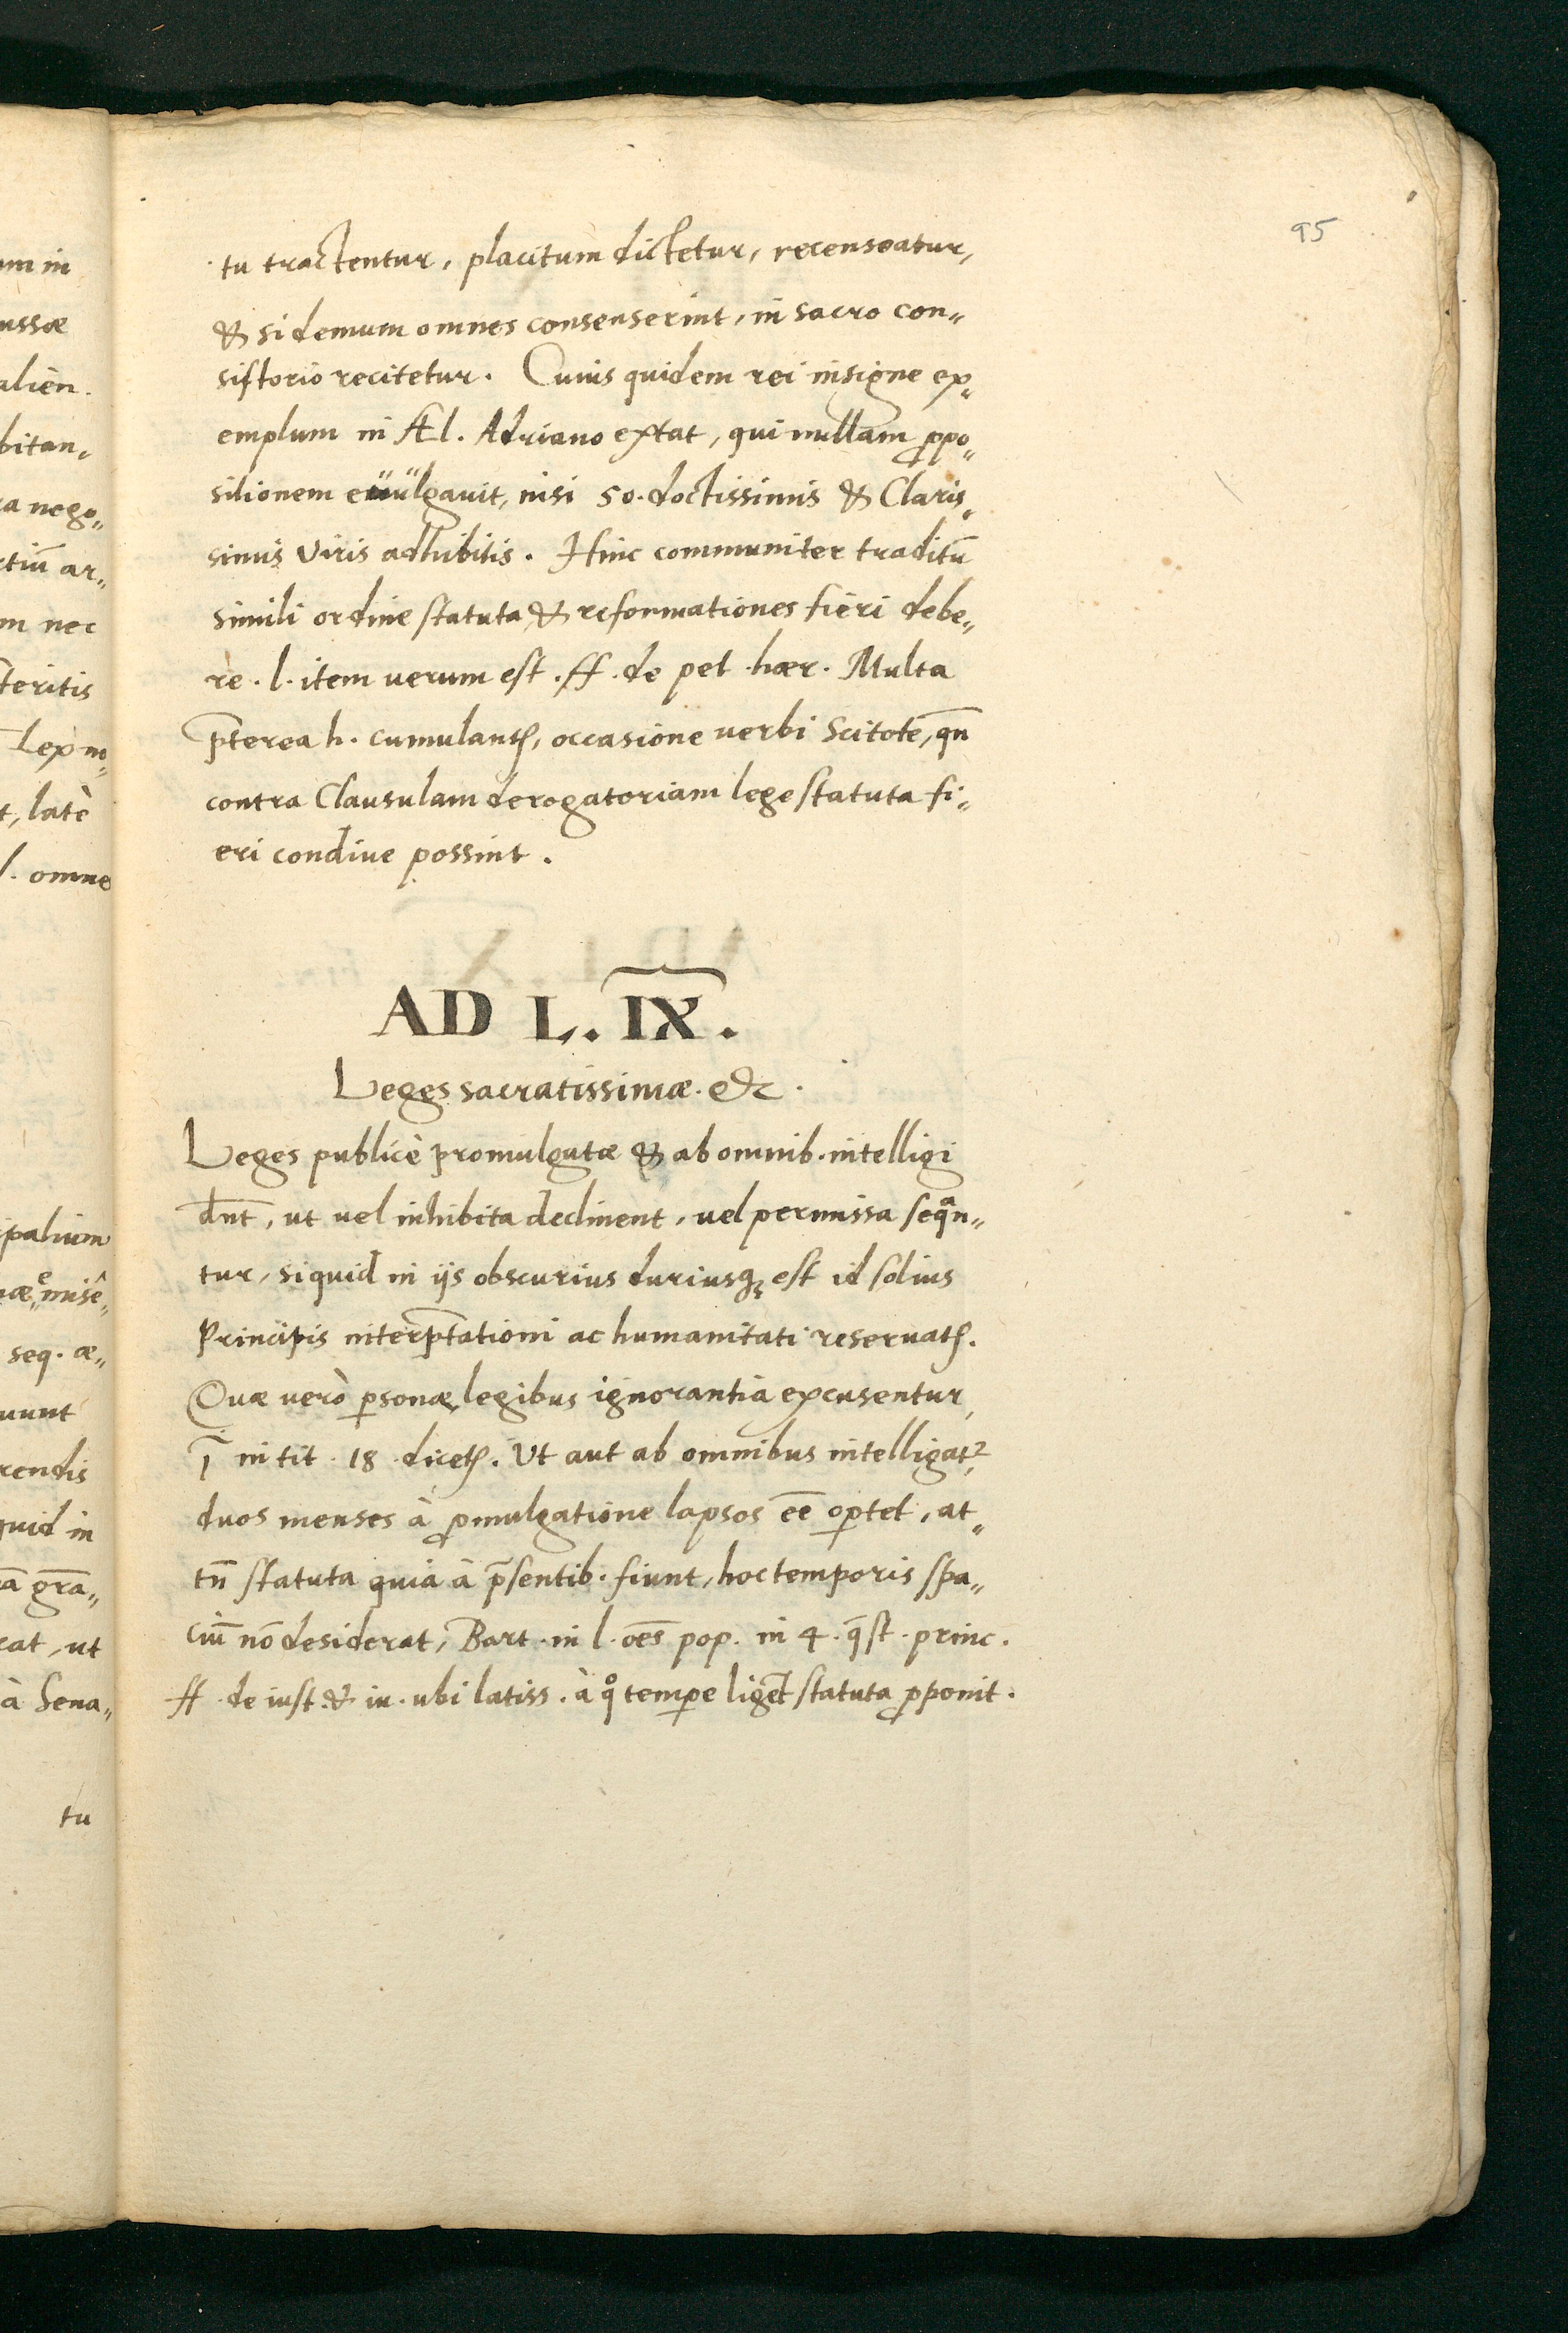 95
tu tractentur, placitum dictetur, recenseatur,
& si demum omnes consenserint, in sacro con„
sistorio recitetur. Cuius quidem rei insigne ex„
emplum in Æl. Adriano extat, qui nullam ꝓpo„
sitionem euulgauit, nisi 50. doctissimis & Claris„
simis Viris adhibitis. Hinc communiter traditū
simili ordine statuta & reformationes fieri debe„
re. l. item uerum est. ff. de pet. hær. Multa
p̄terea h. cumulantꝭ, occasione uerbi Scitote, qn̄
contra Clausulam derogatoriam lege statuta fi„
eri condiue possint.
AD L. IX.
Leges sacratissimæ. &c.
Leges publicè promulgatæ & ab omnib. intelligi
dn̄t, ut uel inhibita declinent, uel permissa seqᵃn„
tur, siquid in ijs obscurius duriusqꝫ est id solius
Principis interp̄tationi ac humanitati reseruatꝭ.
Quæ uerò ꝑsonæ legibus ignorantia excusentur,
ī in tit. 18. dicetꝭ. Ut aut ab omnibus intelligat᷑,
duos menses à ꝓmulgatione lapsos eē oꝑtet, at„
tn̄ statuta quia à p̄sentib. fiunt, hoc temporis spa„
ciū nō desiderat, Bart. in l. oēs pop. in 4. q̄st. princ.
ff. de iust. & iu. ubi latiss. à qͦ temꝑe ligēt statuta ꝓponit.
um in
ussæ
alien.
bitan„
ra nego„
rtiū ar„
m nec
teritis
Lex m„
t, latè
l. omne
ipalium
seq. æ„
uunt
rendis
quid in
grā„
eat, ut
à Sena„
tu